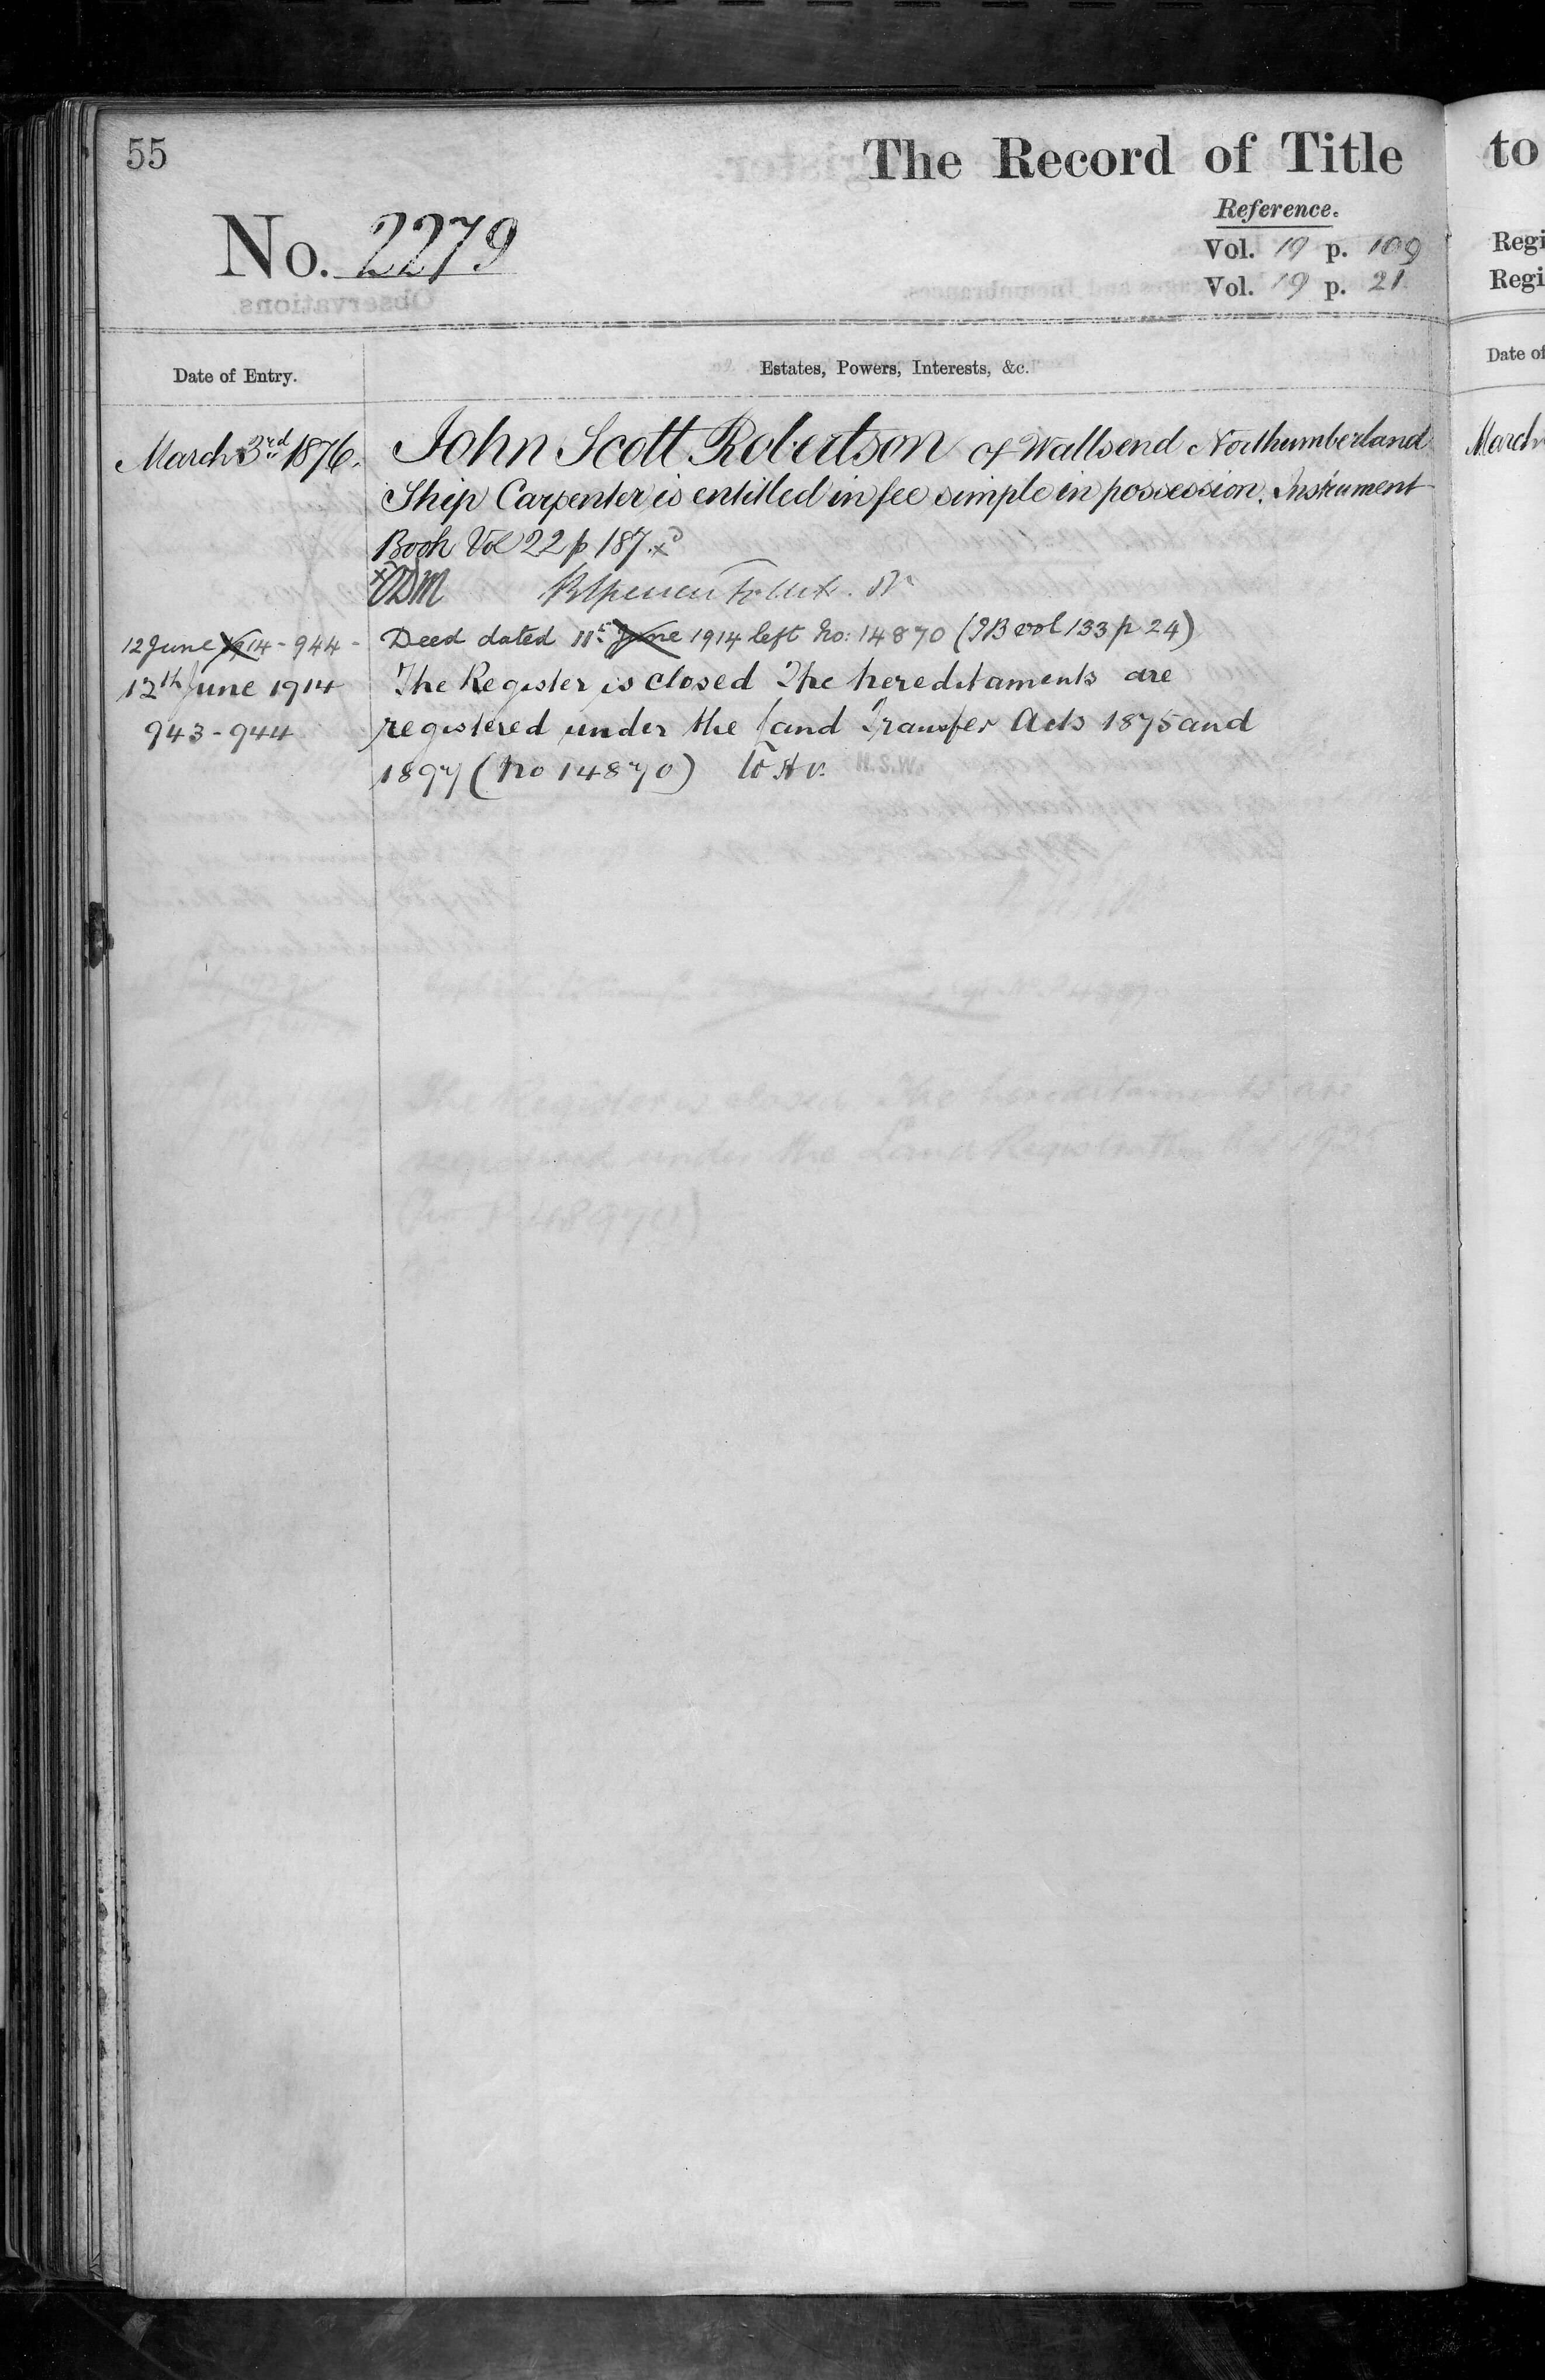 55
The Record of Title
to
No. 2279
Reference.
Vol. 19 p. 109
Vol. 19 p. 21
Regi
Regi
Date of Entry.
Estates, Powers, Interests, &c.
Date of
March 3rd 1876.
John Scott Robertson of Wallsend Northumberland
March
Ship Carpenter is entitled in fee simple in possession. Instrument
Book Vol 22 p 187
12 June 1914 - 944 -
Deed dated 11th June 1914 left No: 14870 (IB vol 133 p 24)
12th June 1914
The Register is closed The hereditaments are
943-944
registered under the Land Transfer Acts 1875 and
1897 (No 14870)
H.S.W.
The Register is closed. The hereditaments are
registered under the Land Registration Act 1925